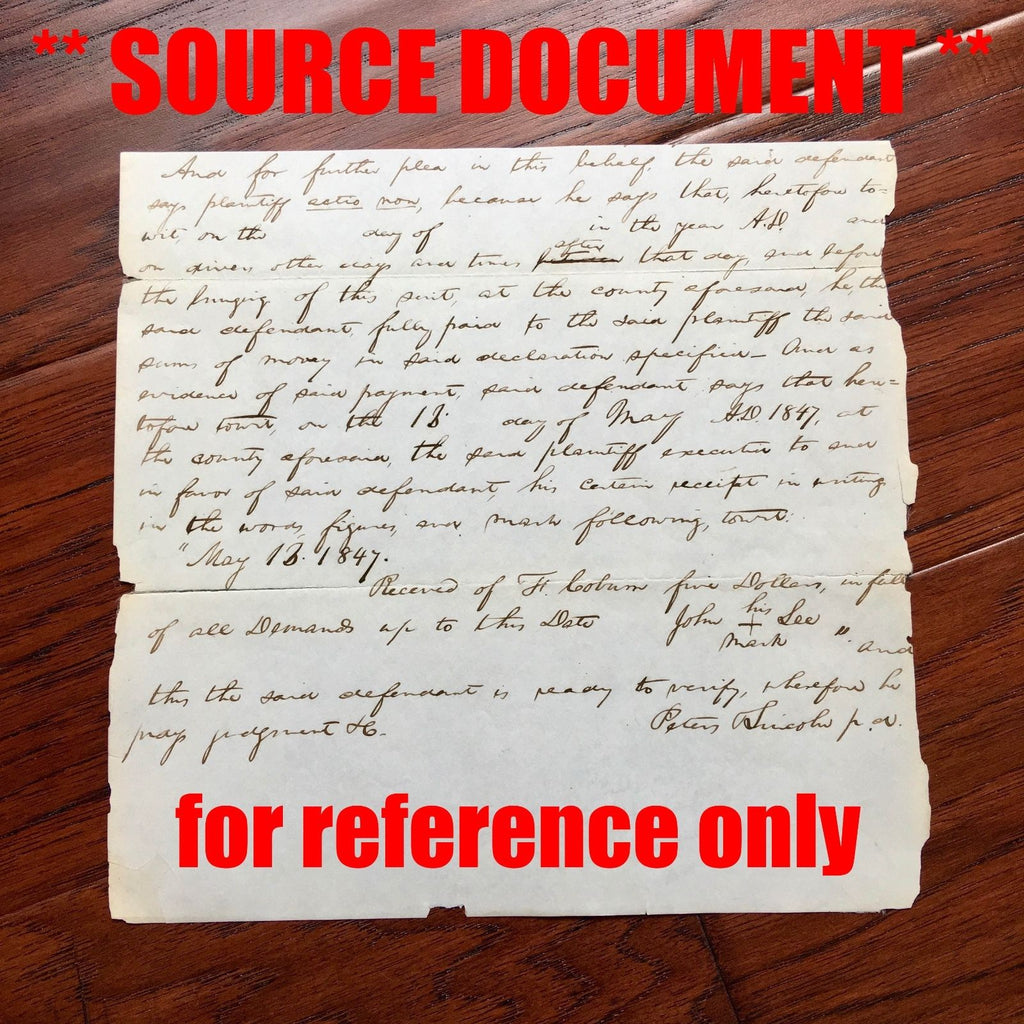 ** SOURCE DOCUMENT **
And for further plea in this behalf, the said defendant
says plaintiff actio non, because he says that, heretofore to=
wit, on the day of in the year A.D. and
on divers other days and times after that day and before
the bringing of this suit, at the county aforesaid, he, the
said defendant, fully paid to the said plaintiff the said
sums of money in said declaration specified— And as
evidence of said payment, said defendant says that here=
tofore towit, on the 13. day of May A.D. 1847, at
the county aforesaid, the said plaintiff executed to and
in favor of said defendant, his certain receipt in writing
in the words, figures, and mark following, towit:
"May 13. 1847.
Received of F. Coburn five Dollars, in full
of all Demands up to this Date John his + mark Lee" and
this the said defendant is ready to verify, wherefore he
prays judgment &c. Peters & Lincoln p. d.
for reference only